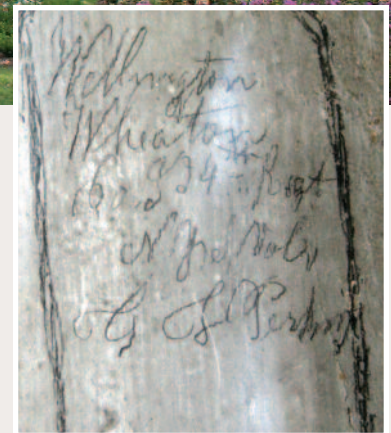 Wellington
Wheaton
Co. 34th Regt
N.Y.S. Vols
Perkins